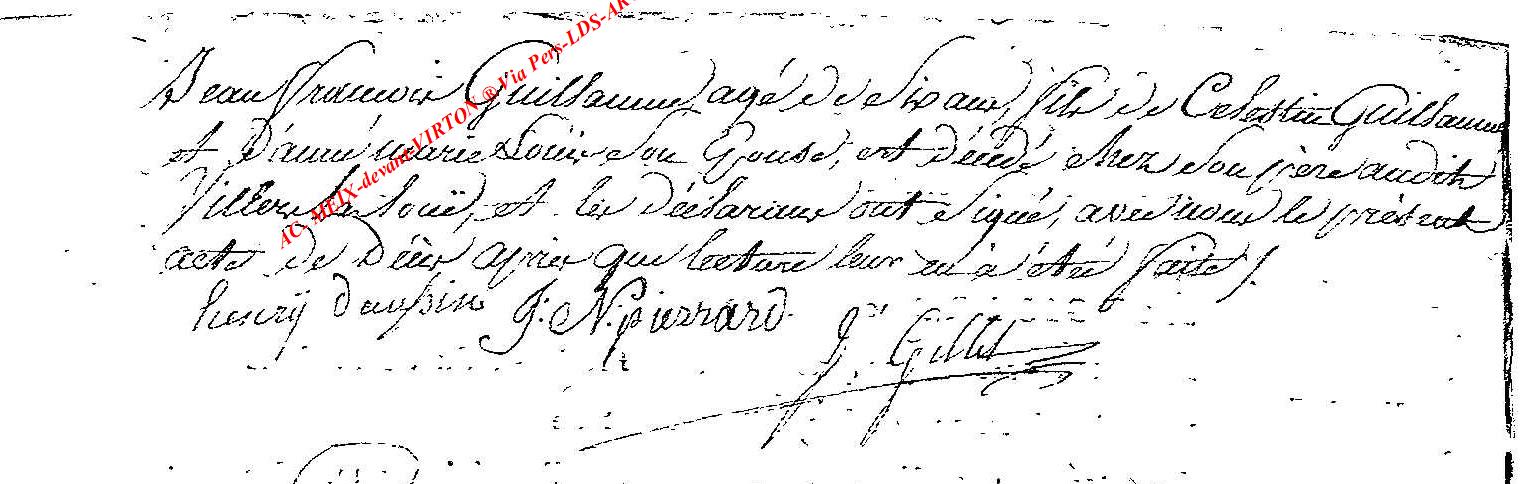 Jean François Guillaume, agé de de six ans, fils de Celestin Guillaume
et D'anne marie Loüis son Epouse, est décédé chez son père audit
Villers la loüe, et les déclarans ont signé, avec nous le présent
acte de Décès après que lecture leur en a été faite /.
henry dauphin J: N: pierrard.
J. Gillet
AC- MEIX-devant-VIRTON ® Via Pers-LDS-AR